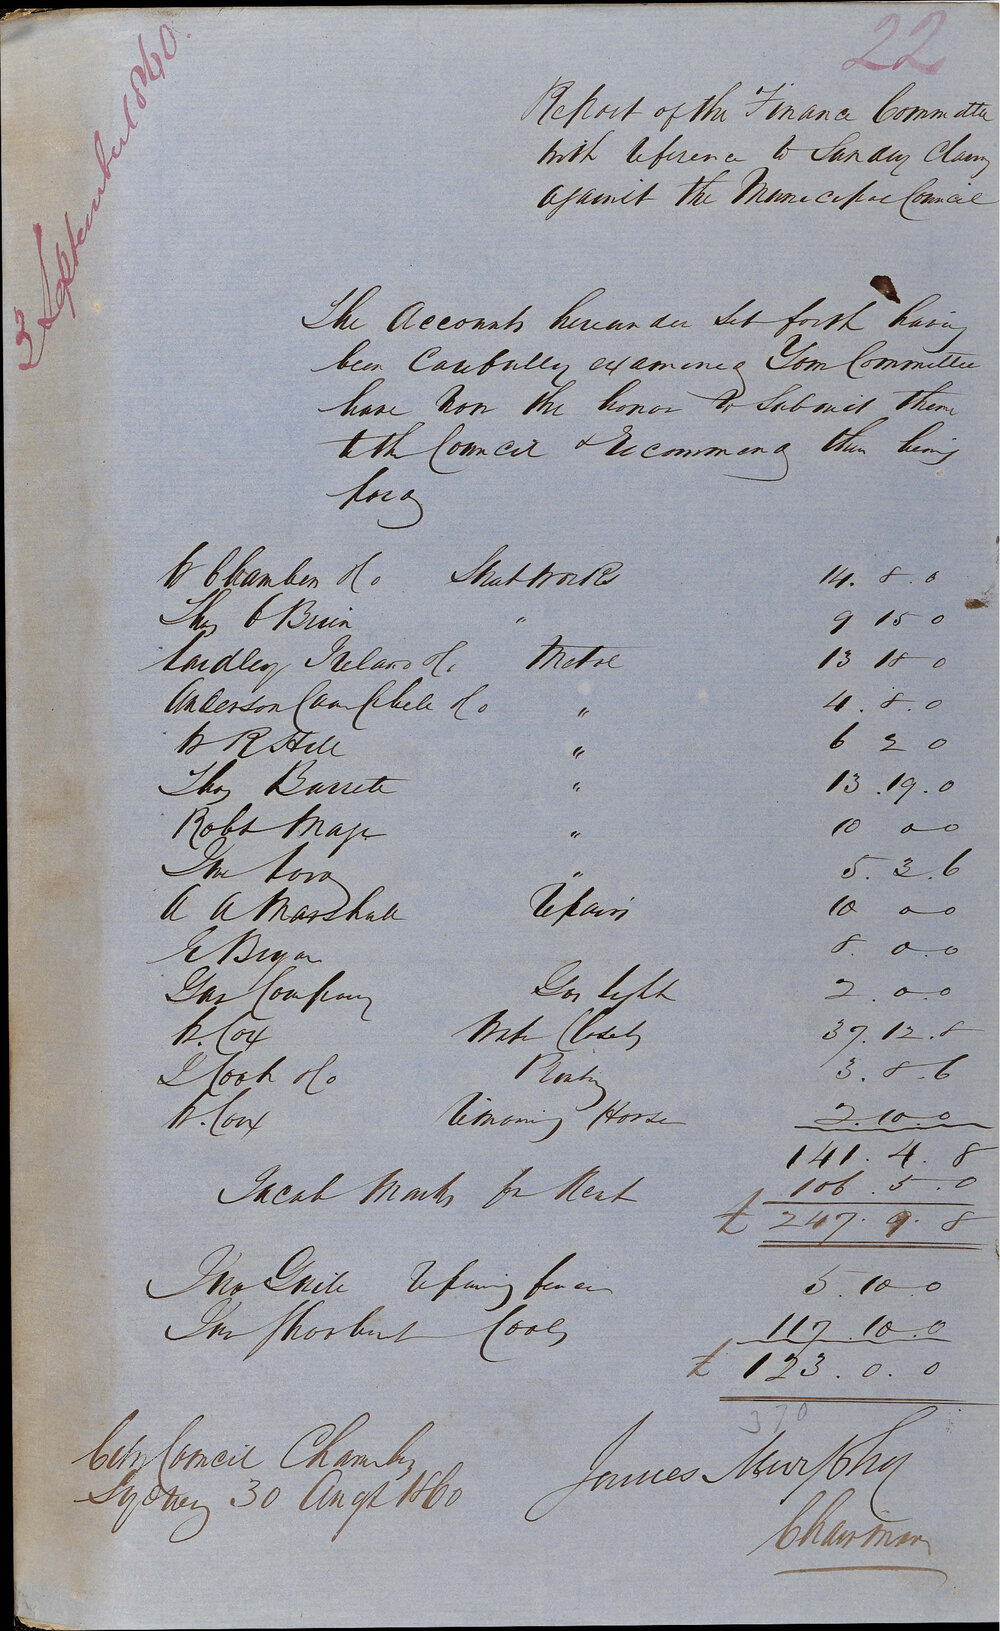 22
3 September 1860.
Report of the Finance Committee
with reference to Sundry Claims
against the Municipal Council
The Accounts hereunder set forth having
been Carefully examined Your Committee
have now the honor to Submit them
to the Council & Recommend their being
paid
W Chamber & Co Slate works 14. 8. 0
Thos O Brien " 9 15 0
Yardley Ireland & Co Metal 13 18 0
Anderson Campbell & Co " 4. 8. 0
W R Hill " 6 2 0
Thos Barrett " 13. 19. 0
Robt " 10 0 0
" 5. 3. 6
A A Marshall Repairs 10 0 0
E Bryan 8. 0. 0
Gas Company Gas light 2. 0. 0
W. Cox Water Closets 37. 12. 8
J Cook & Co Printing 3. 8. 6
W. Cox Removing Horse 2. 10. 0
141. 4. 8
Jacob Marks for Rent 106. 5. 0
£ 247. 9. 8
Jno Repairing fence 5. 10. 0
Coals 117. 10. 0
£ 123. 0. 0
370
City Council Chambers
Sydney 30 Augt 1860
James Murphy
Chairman